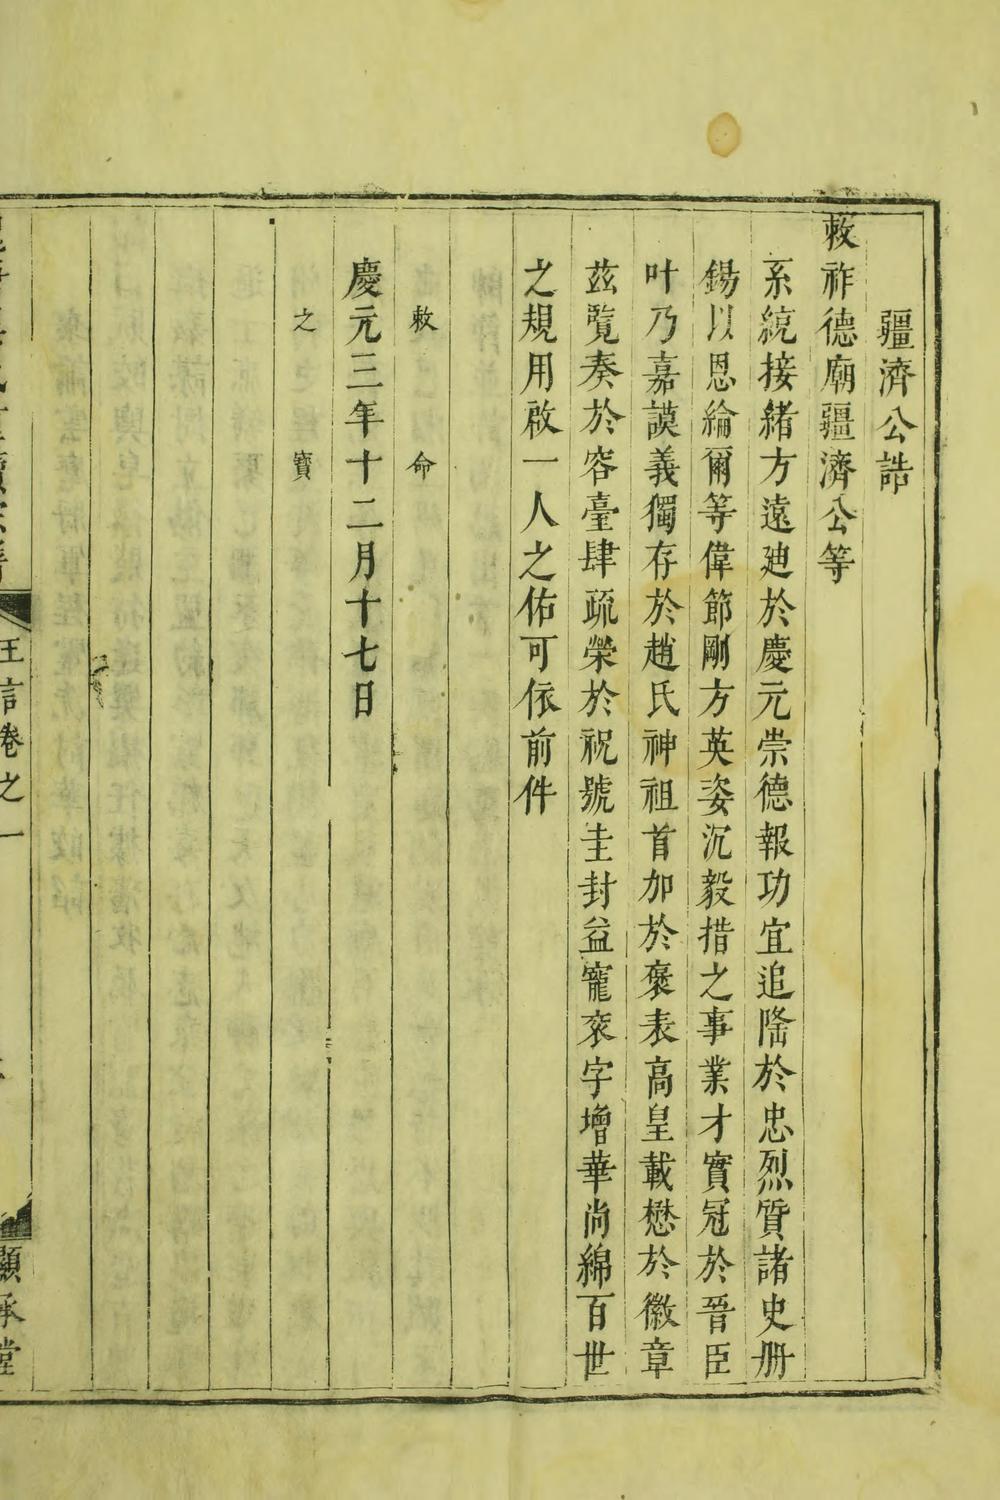 疆濟公誥
敕祚德廟疆濟公等
系統接緒方遠廸於慶元崇德報功宜追隆於忠烈質諸史册
錫以恩綸爾等偉節剛方英姿沉毅措之事業才實冠於晉臣
叶乃嘉謨義獨存於趙氏神祖首加於褒表高皇載懋於徽章
茲覽奏於容臺肆疏榮於祝號圭封益寵衮字增華尚綿百世
之規用啟一人之佑可依前件
敕命
慶元三年十二月十七日
之寶
王言卷之一
顯承堂